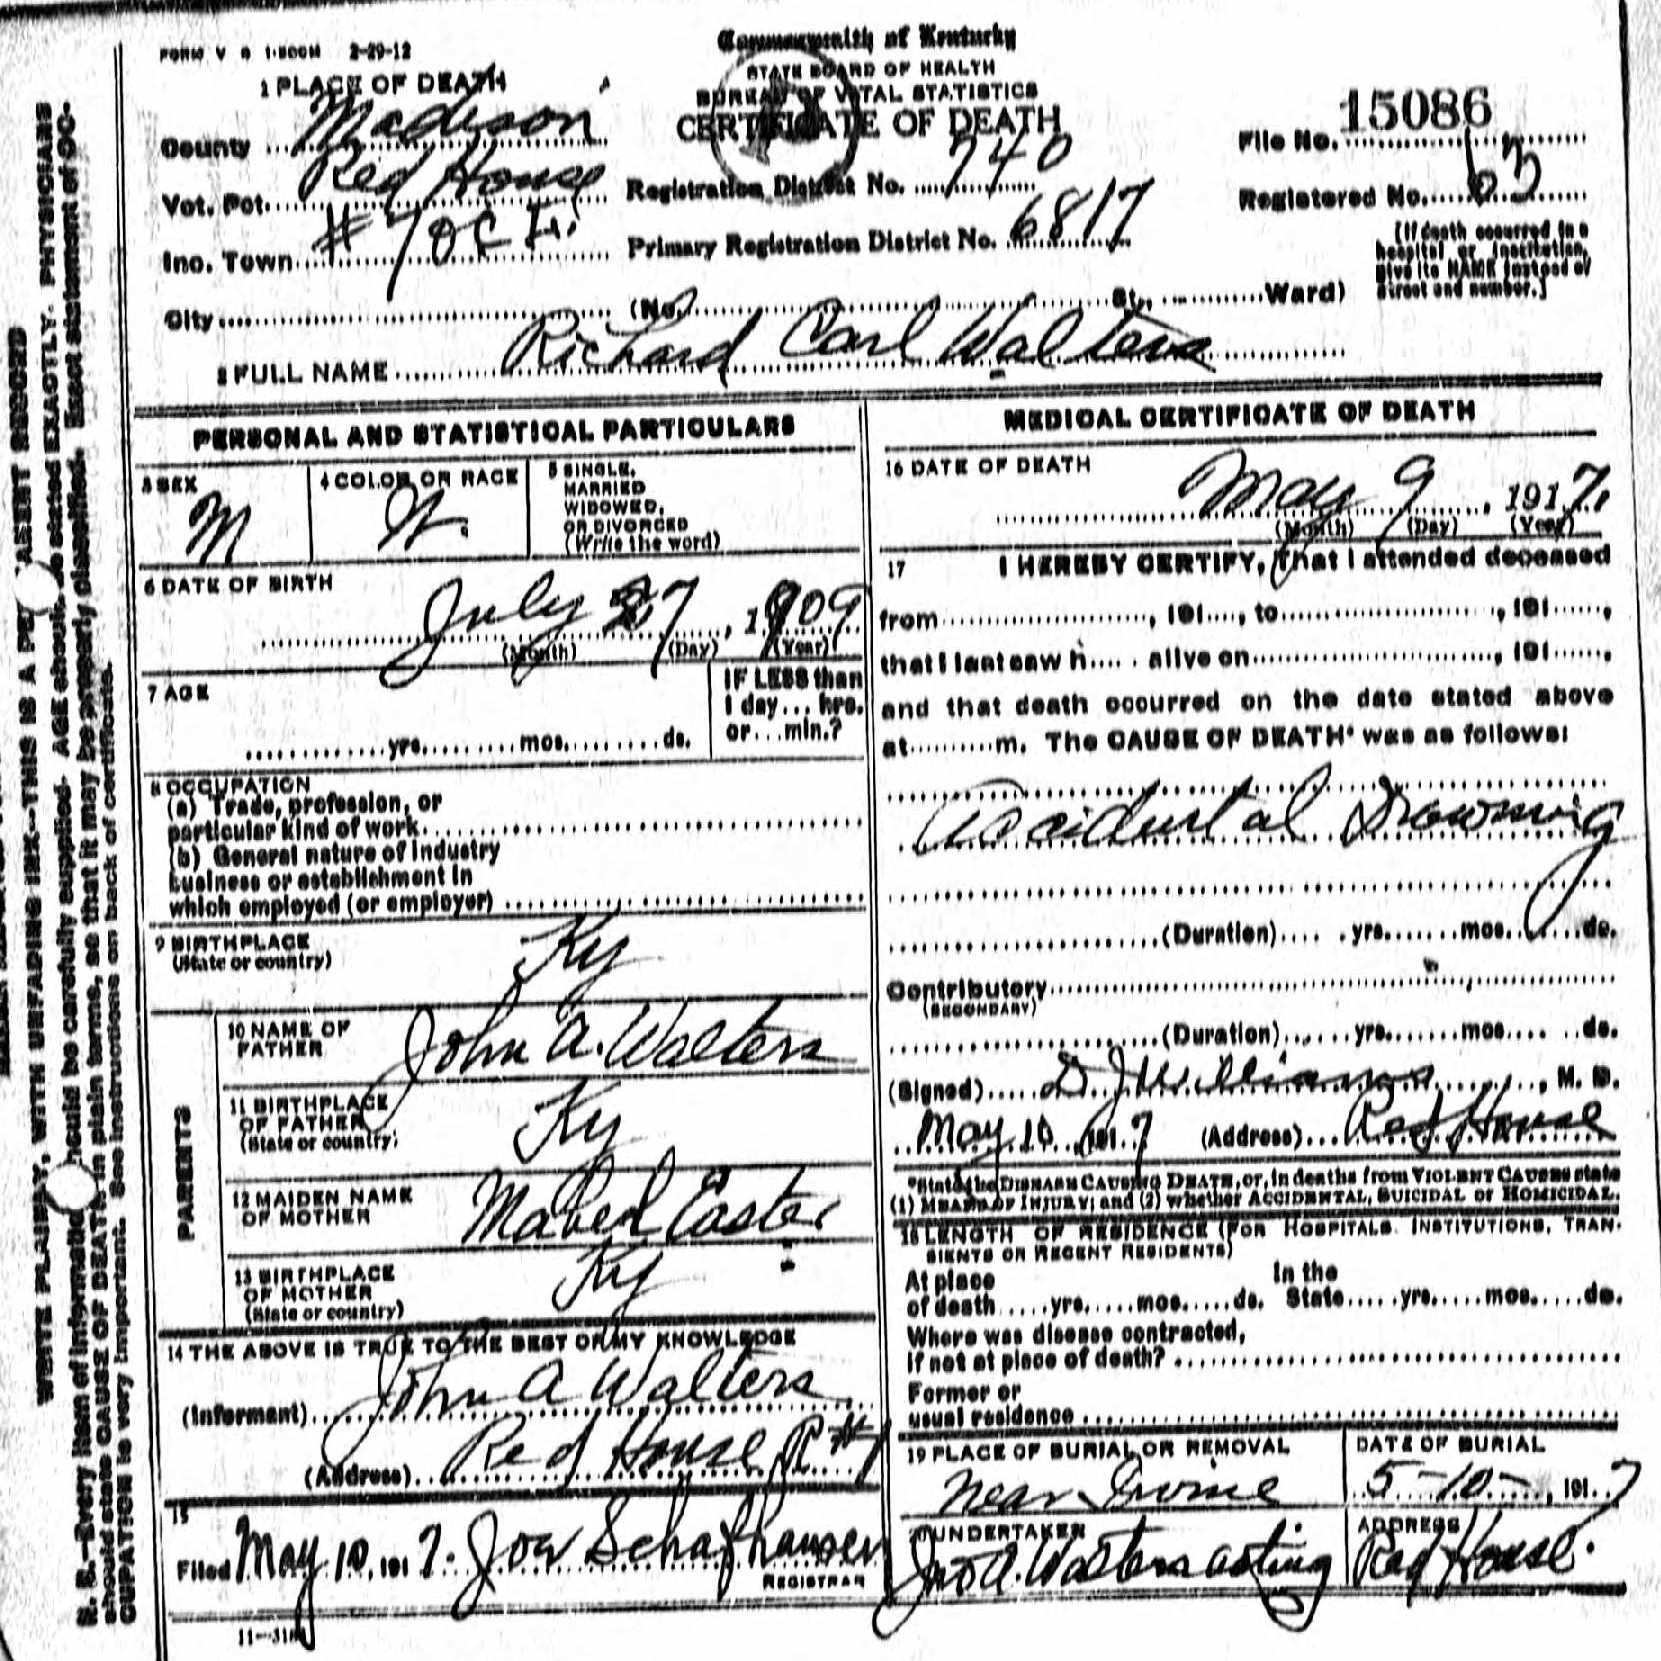 FORM V S 1-500M 2-29-12
Commonwealth of Kentucky
STATE BOARD OF HEALTH
BUREAU OF VITAL STATISTICS
CERTIFICATE OF DEATH
1 PLACE OF DEATH
County Madison
Vot. Pct. Red House
Inc. Town
City (No. St., Ward)
Registration District No. 740
Primary Registration District No. 6817
File No. 15086
Registered No. 63
[If death occurred in a
hospital or institution,
give its NAME instead of
street and number.]
2 FULL NAME Richard Carl Walters
PERSONAL AND STATISTICAL PARTICULARS
3 SEX
M
4 COLOR OR RACE
W.
5 SINGLE,
MARRIED
WIDOWED,
OR DIVORCED
(Write the word)
6 DATE OF BIRTH
July 27, 1909
(Month) (Day) (Year)
7 AGE
yrs. mos. ds.
IF LESS than
1 day... hrs.
or...min.?
8 OCCUPATION
(a) Trade, profession, or
particular kind of work
(b) General nature of industry
business or establishment in
which employed (or employer)
9 BIRTHPLACE
(State or country)
Ky
PARENTS
10 NAME OF
FATHER
John A. Walters
11 BIRTHPLACE
OF FATHER
(State or country)
Ky
12 MAIDEN NAME
OF MOTHER
Mabel Easter
13 BIRTHPLACE
OF MOTHER
(State or country)
Ky
14 THE ABOVE IS TRUE TO THE BEST OF MY KNOWLEDGE
(Informant) John A Walters
(Address) Red House R #1
15
Filed May 10, 1917. Joe Schafhausen
REGISTRAR
11-31
MEDICAL CERTIFICATE OF DEATH
16 DATE OF DEATH
May 9, 1917.
(Month) (Day) (Year)
17 I HEREBY CERTIFY, That I attended deceased
from , 191...., to , 191......,
that I last saw h..... alive on , 191......,
and that death occurred on the date stated above
at m. The CAUSE OF DEATH* was as follows:
Accidental Drowning
(Duration) yrs. mos. ds.
Contributory
(SECONDARY)
(Duration) yrs. mos. ds.
(Signed) D. J. Williams, M. D.
May 10 1917 (Address) Red House
*State the DISEASE CAUSING DEATH, or, in deaths from VIOLENT CAUSES state
(1) MEANS OF INJURY; and (2) whether ACCIDENTAL, SUICIDAL or HOMICIDAL.
18 LENGTH OF RESIDENCE (FOR HOSPITALS, INSTITUTIONS, TRAN-
SIENTS OR RECENT RESIDENTS)
At place of death yrs. mos. ds. In the State yrs. mos. ds.
Where was disease contracted,
if not at place of death?
Former or
usual residence
19 PLACE OF BURIAL OR REMOVAL
Near Irvine
DATE OF BURIAL
5-10-, 1917
20 UNDERTAKER
Jno A. Walters acting
ADDRESS
Red House.
WRITE PLAINLY, WITH UNFADING INK--THIS IS A PE ANENT RECORD
N. B.--Every item of information should be carefully supplied. AGE should be stated EXACTLY. PHYSICIANS
should state CAUSE OF DEATH in plain terms, so that it may be properly classified. Exact statement of OC-
CUPATION is very important. See instructions on back of certificate.